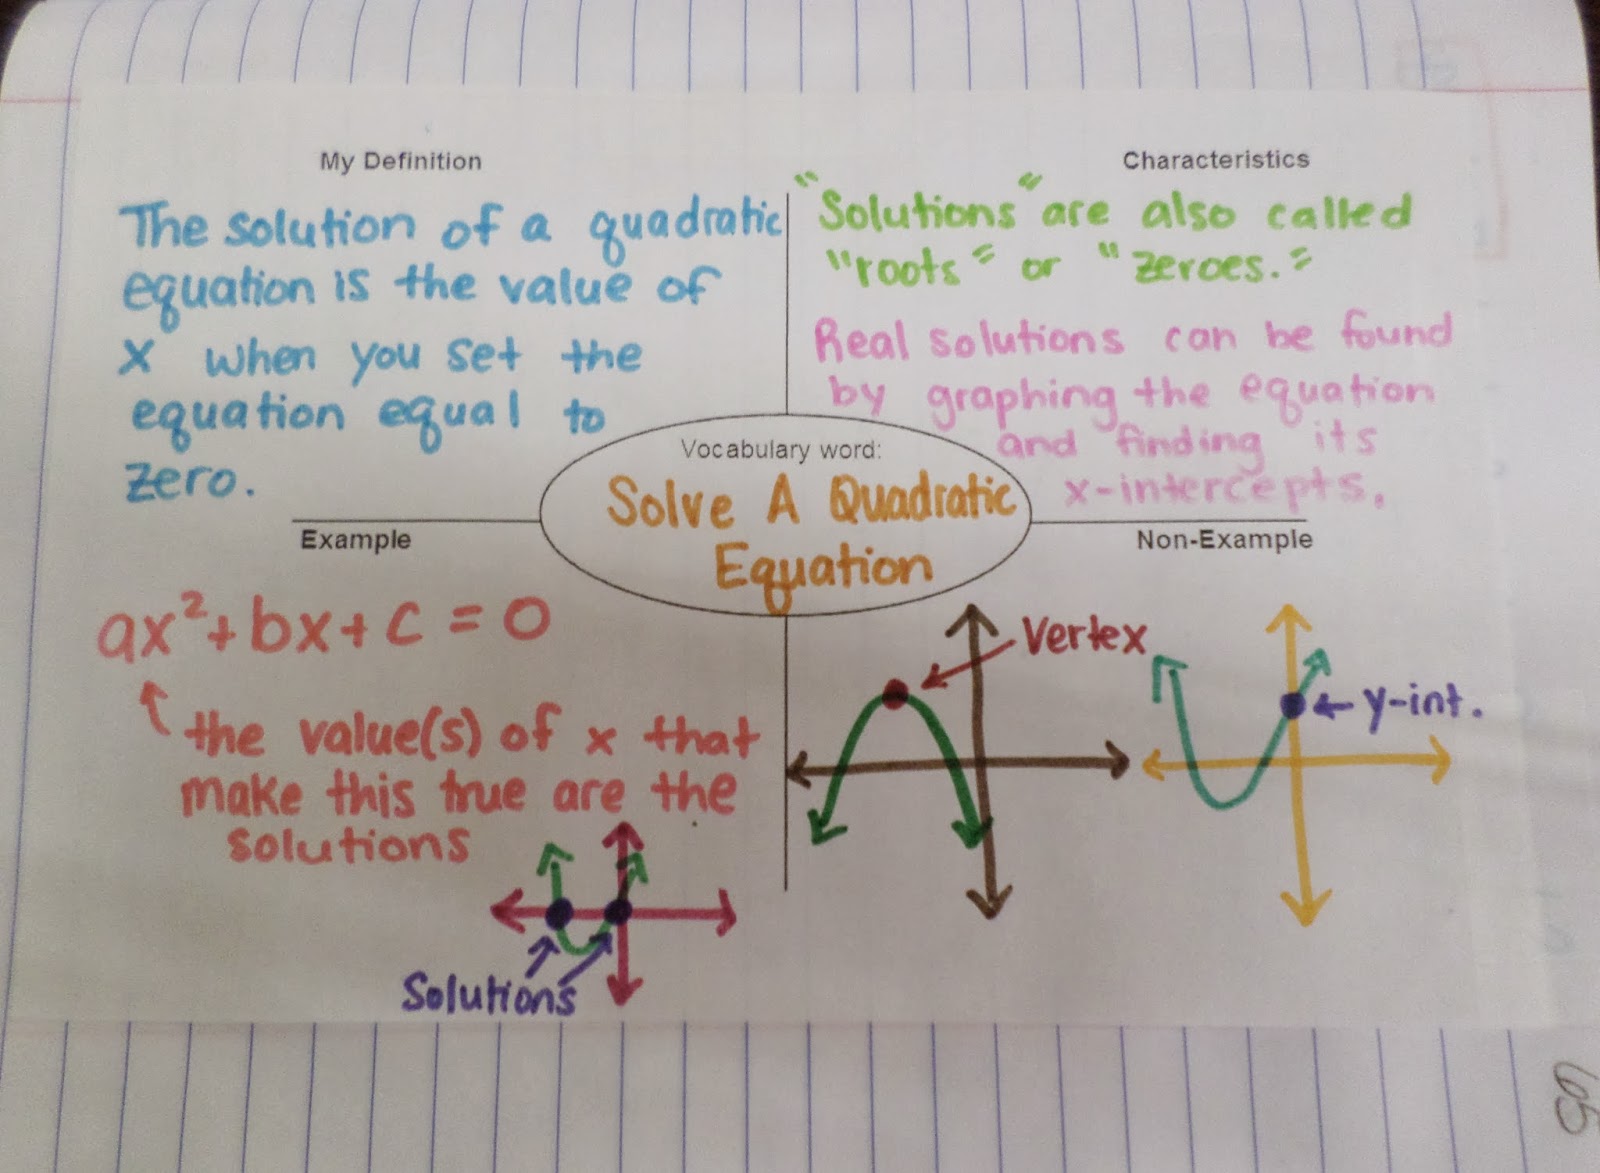 My Definition
The solution of a quadratic
equation is the value of
x when you set the
equation equal to
zero.
Characteristics
"Solutions" are also called
"roots" or "zeroes."
Real solutions can be found
by graphing the equation
and finding its
x-intercepts.
Vocabulary word:
Solve A Quadratic
Equation
Example
ax²+bx+c=0
the value(s) of x that
make this true are the
solutions
Solutions
Non-Example
Vertex
y-int.
65